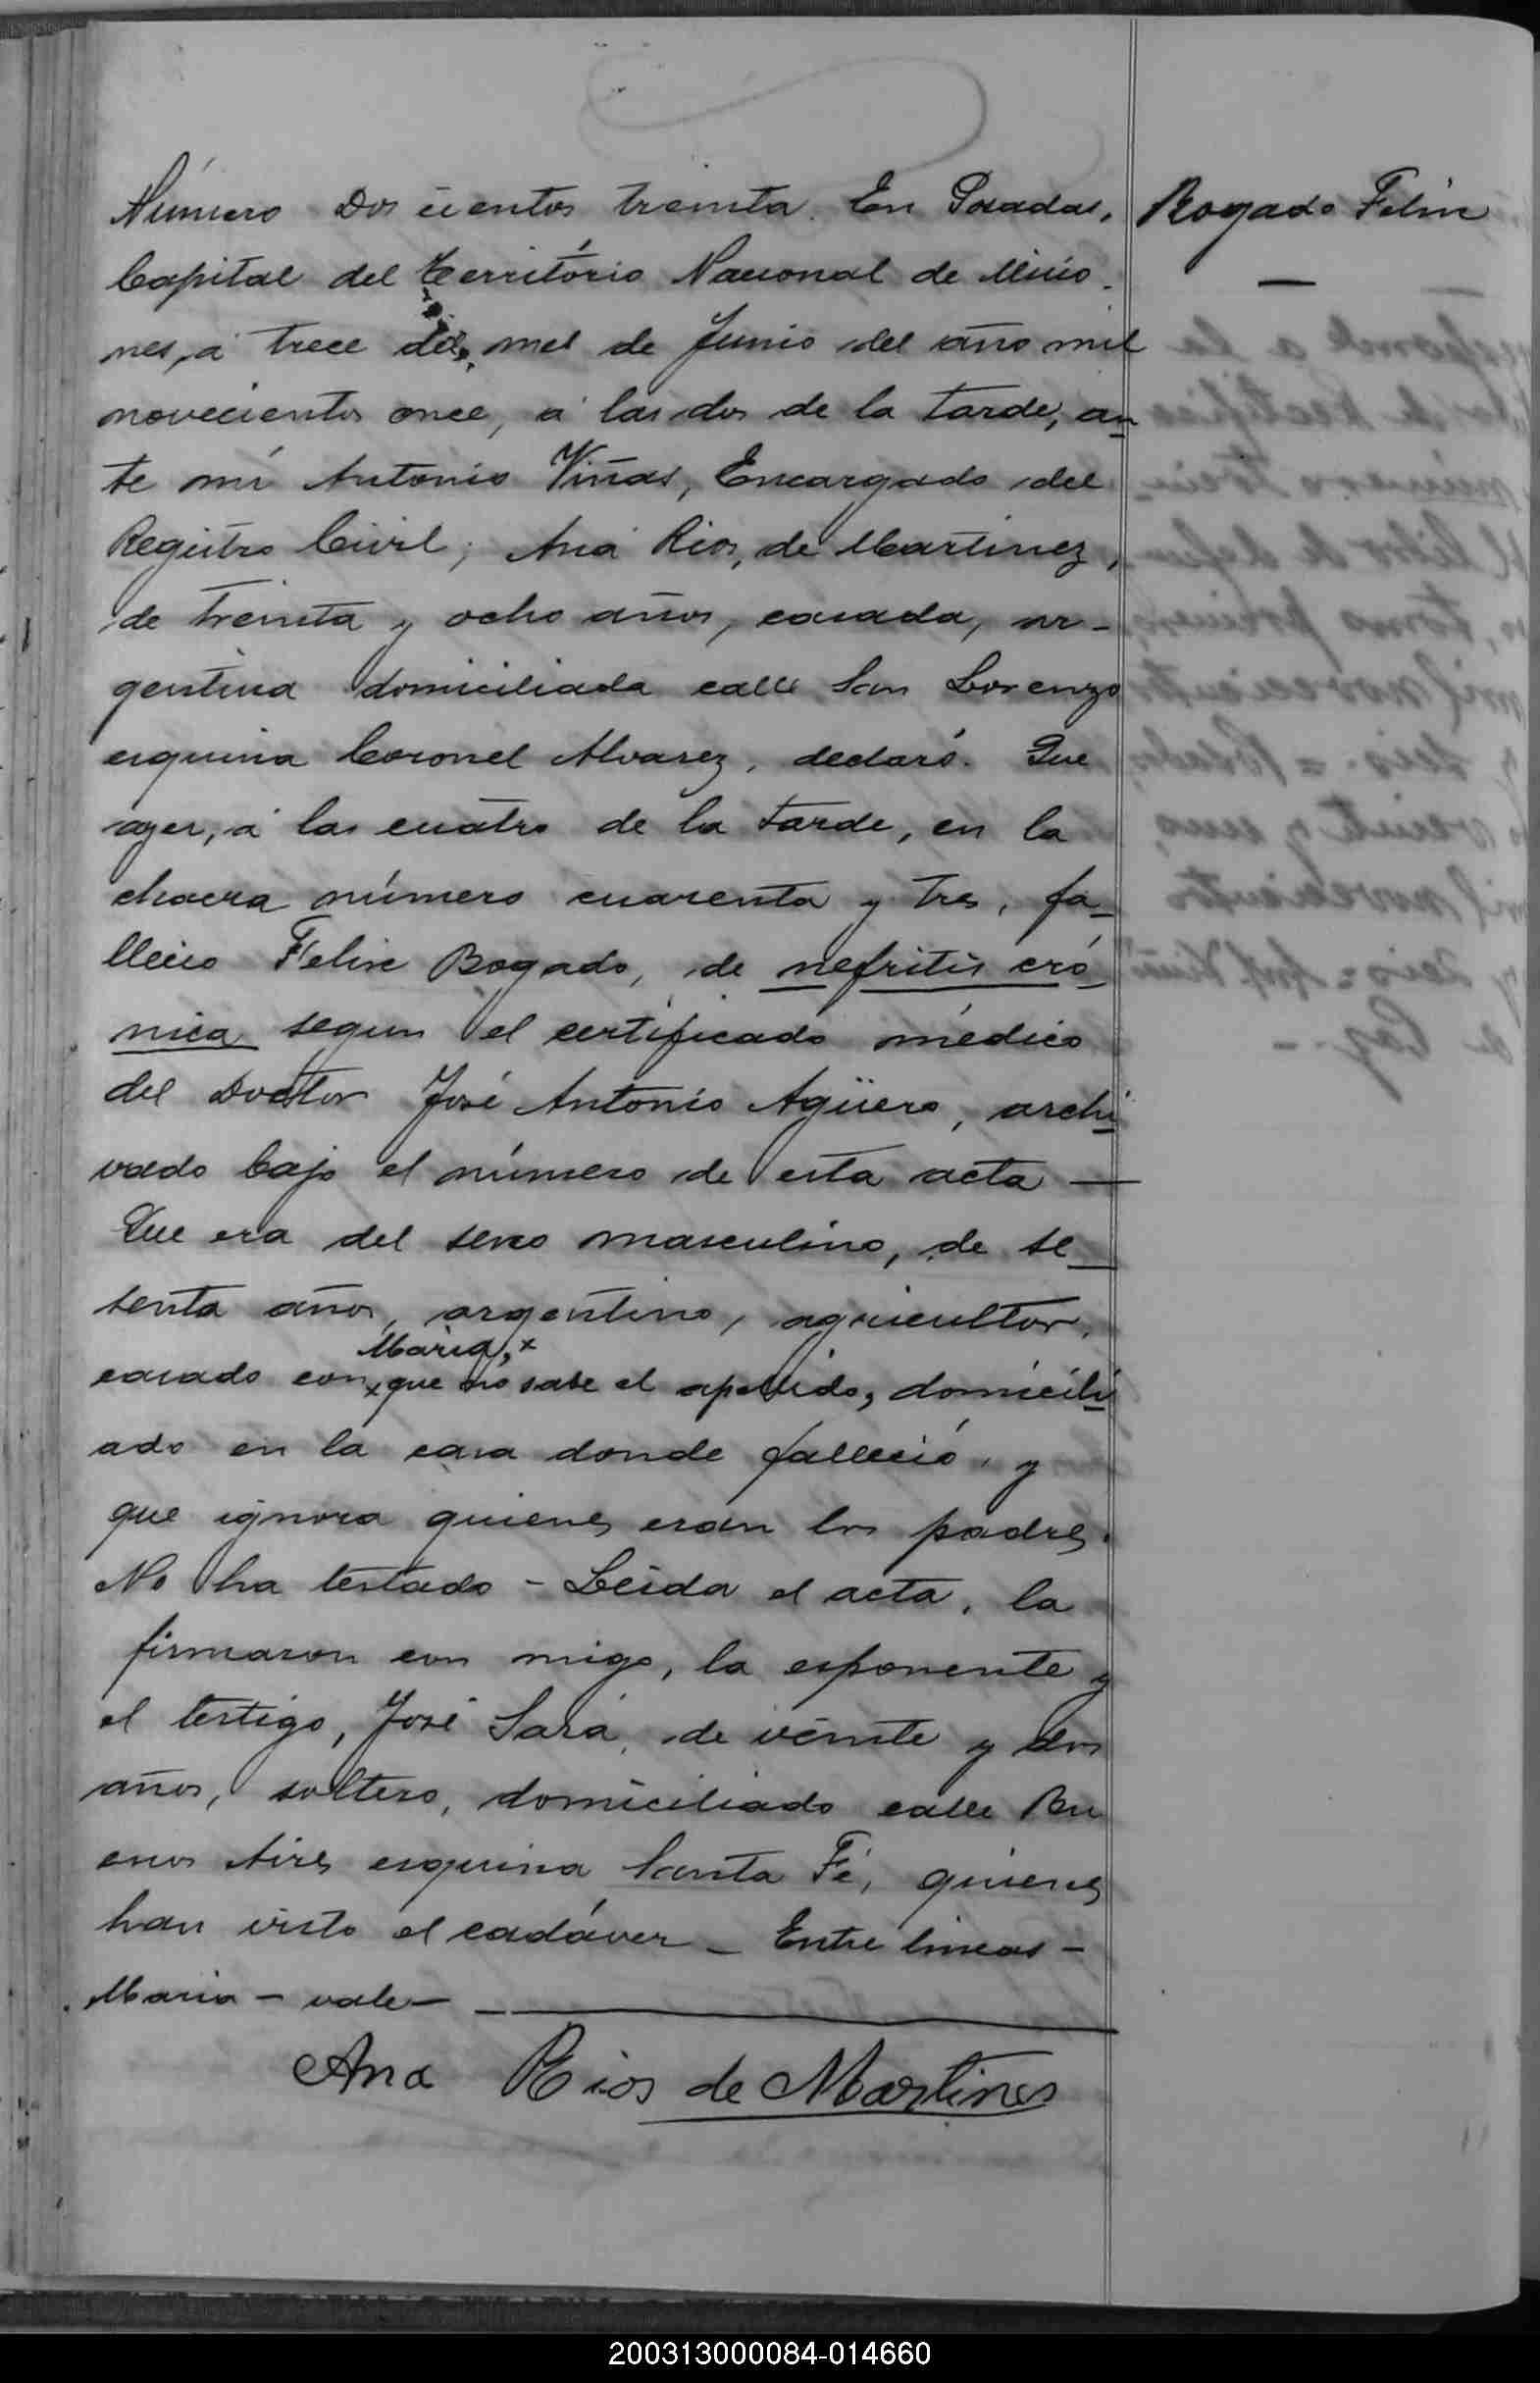 Número Dos cientos treinta. En Posadas,
Capital del Territorio Nacional de Misio-
nes, á trece del mes de Junio del año mil
novecientos once, á las dos de la tarde, an
te mí Antonio Viñas, Encargado del
Registro Civil; Ana Rios, de Martinez,
de treinta y ocho años, casada, ar-
gentina domiciliada calle San Lorenzo
esquina Coronel Alvarez, declaró. Que
ayer, á las cuatro de la tarde, en la
chacra número cuarenta y tres, fa-
lleció Felix Bogado, de nefritis cró
nica segun el certificado médico
del Doctor José Antonio Agüero, archi
vado bajo el número de esta acta —
Que era del sexo masculino, de se
senta años, argentino, agricultor,
Maria, x
casado con x que no sabe el apellido, domicili
ado en la casa donde falleció, y
que ignora quienes eran los padres.
No ha testado - Leida el acta, la
firmaron con migo, la esponente y
el testigo, José Sará, de veinte y dos
años, soltero, domiciliado calle Bu
enos Aires esquina Santa Fé, quienes
han visto el cadáver - Entre lineas -
Maria - vale -
Ana Rios de Martines
Bogado Felix
—
200313000084-014660